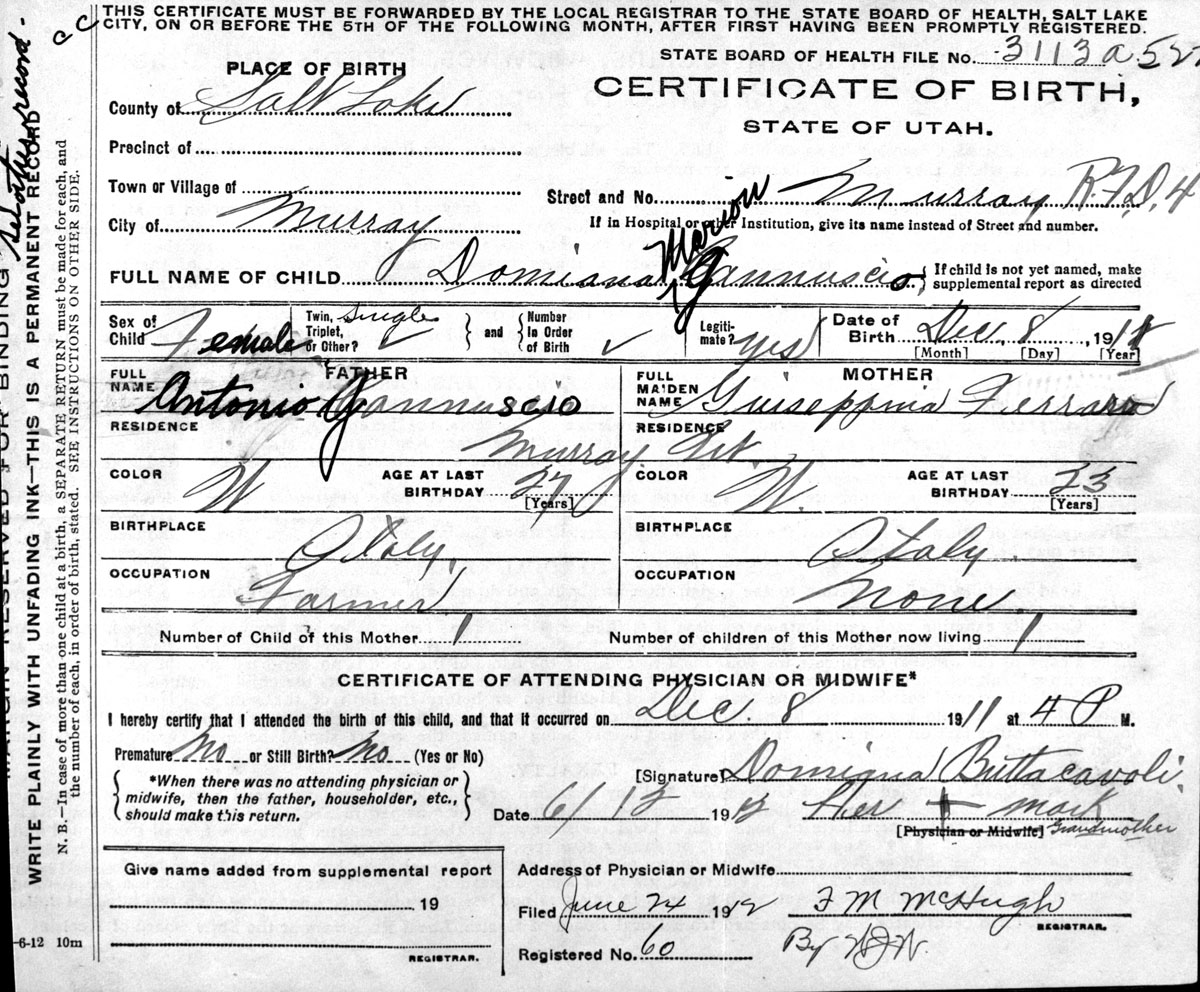 THIS CERTIFICATE MUST BE FORWARDED BY THE LOCAL REGISTRAR TO THE STATE BOARD OF HEALTH, SALT LAKE
CITY, ON OR BEFORE THE 5TH OF THE FOLLOWING MONTH, AFTER FIRST HAVING BEEN PROMPTLY REGISTERED.
STATE BOARD OF HEALTH FILE No. 3113a522
PLACE OF BIRTH
CERTIFICATE OF BIRTH,
STATE OF UTAH.
County of Salt Lake
Precinct of
Town or Village of
Street and No. Murray R.F.D. 4
City of Murray
If in Hospital or other Institution, give its name instead of Street and number.
Marion
FULL NAME OF CHILD Domiana Gannuscio { If child is not yet named, make supplemental report as directed
Sex of Child Female
Twin, Triplet, or Other? Single ✓ } and { Number In Order of Birth ✓
Legitimate? yes
Date of Birth Dec. 8, 1911
[Month] [Day] [Year]
FATHER
FULL NAME Antonio Gannuscio
MOTHER
FULL MAIDEN NAME Giuseppina Ferrara
RESIDENCE Murray Ut. RESIDENCE
COLOR W AGE AT LAST BIRTHDAY 27 [Years]
COLOR W. AGE AT LAST BIRTHDAY 23 [Years]
BIRTHPLACE Italy.
BIRTHPLACE Italy
OCCUPATION Farmer
OCCUPATION None
Number of Child of this Mother 1 Number of children of this Mother now living 1
CERTIFICATE OF ATTENDING PHYSICIAN OR MIDWIFE*
I hereby certify that I attended the birth of this child, and that it occurred on Dec. 8 1911 at 4 P M.
Premature No or Still Birth? No (Yes or No)
{ *When there was no attending physician or midwife, then the father, householder, etc., should make this return. }
[Signature] Domigna Buttacavoli
Date 6/13 1912 Her + mark
[Physician or Midwife] Grandmother
Give name added from supplemental report
19
REGISTRAR.
Address of Physician or Midwife
Filed June 24 1912 F M McHugh
REGISTRAR.
Registered No. 60 By W.J.W.
-6-12 10m
MARGIN RESERVED FOR BINDING
WRITE PLAINLY WITH UNFADING INK—THIS IS A PERMANENT RECORD
N. B.—In case of more than one child at a birth, a SEPARATE RETURN must be made for each, and
the number of each, in order of birth, stated. SEE INSTRUCTIONS ON OTHER SIDE.